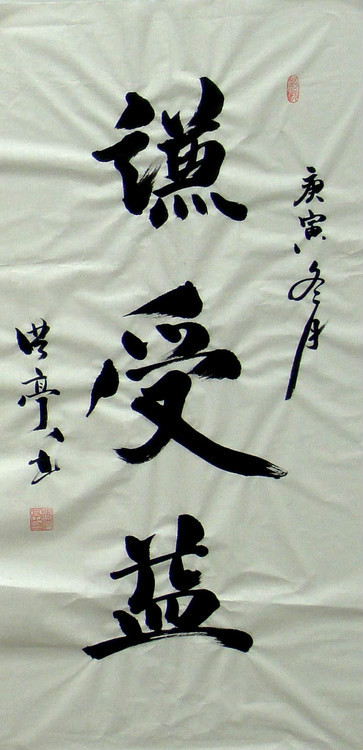 庚寅冬月
謙受益
洪亭书